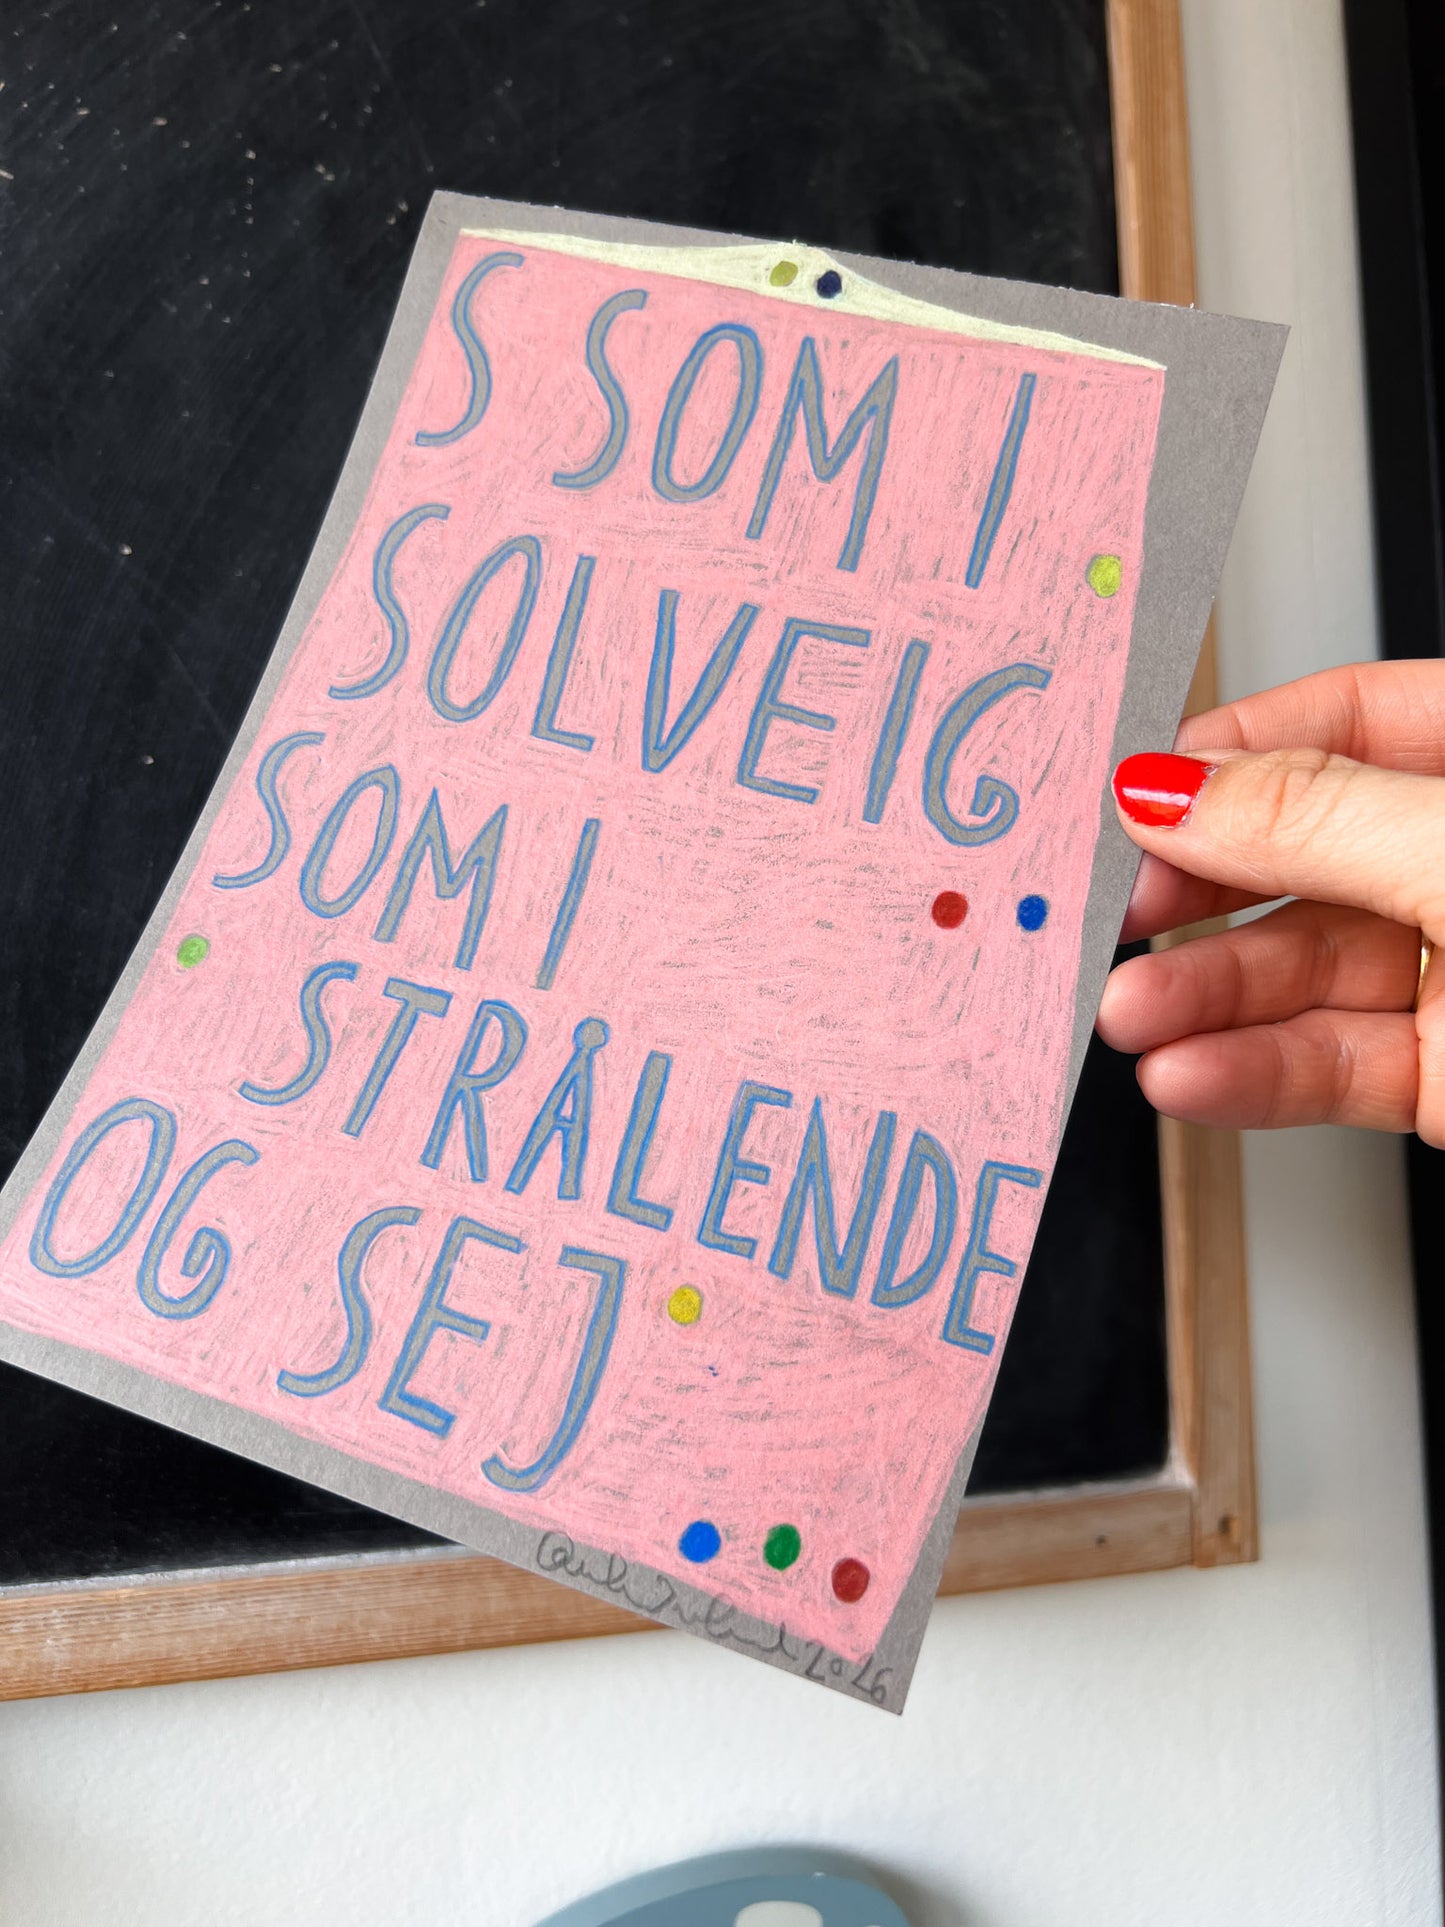 S SOM I
SOLVEIG
SOM I
STRÅLENDE
OG SEJ
2026